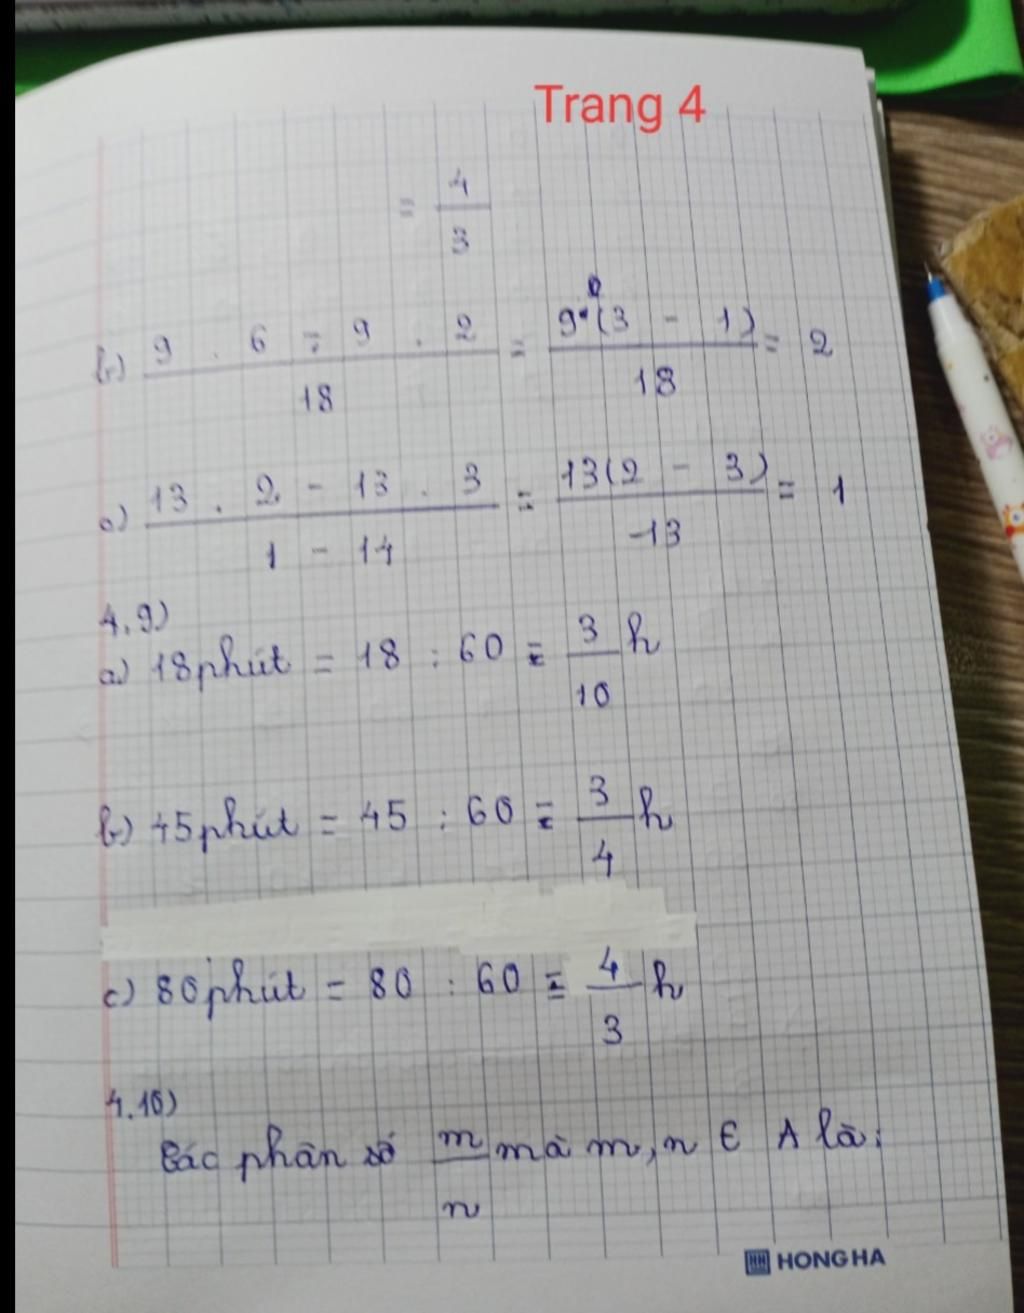 Trang 4
= 4/3
b) 9 . 6 - 9 . 2 / 18 = 9.(3 - 1) / 18 = 2
c) 13 . 2 - 13 . 3 / 1 - 14 = 13(2 - 3) / -13 = 1
4.9)
a) 18 phút = 18 : 60 = 3/10 h
b) 45 phút = 45 : 60 = 3/4 h
c) 80 phút = 80 : 60 = 4/3 h
4.10)
Các phân số m/n mà m, n ∈ A là:
HONG HA